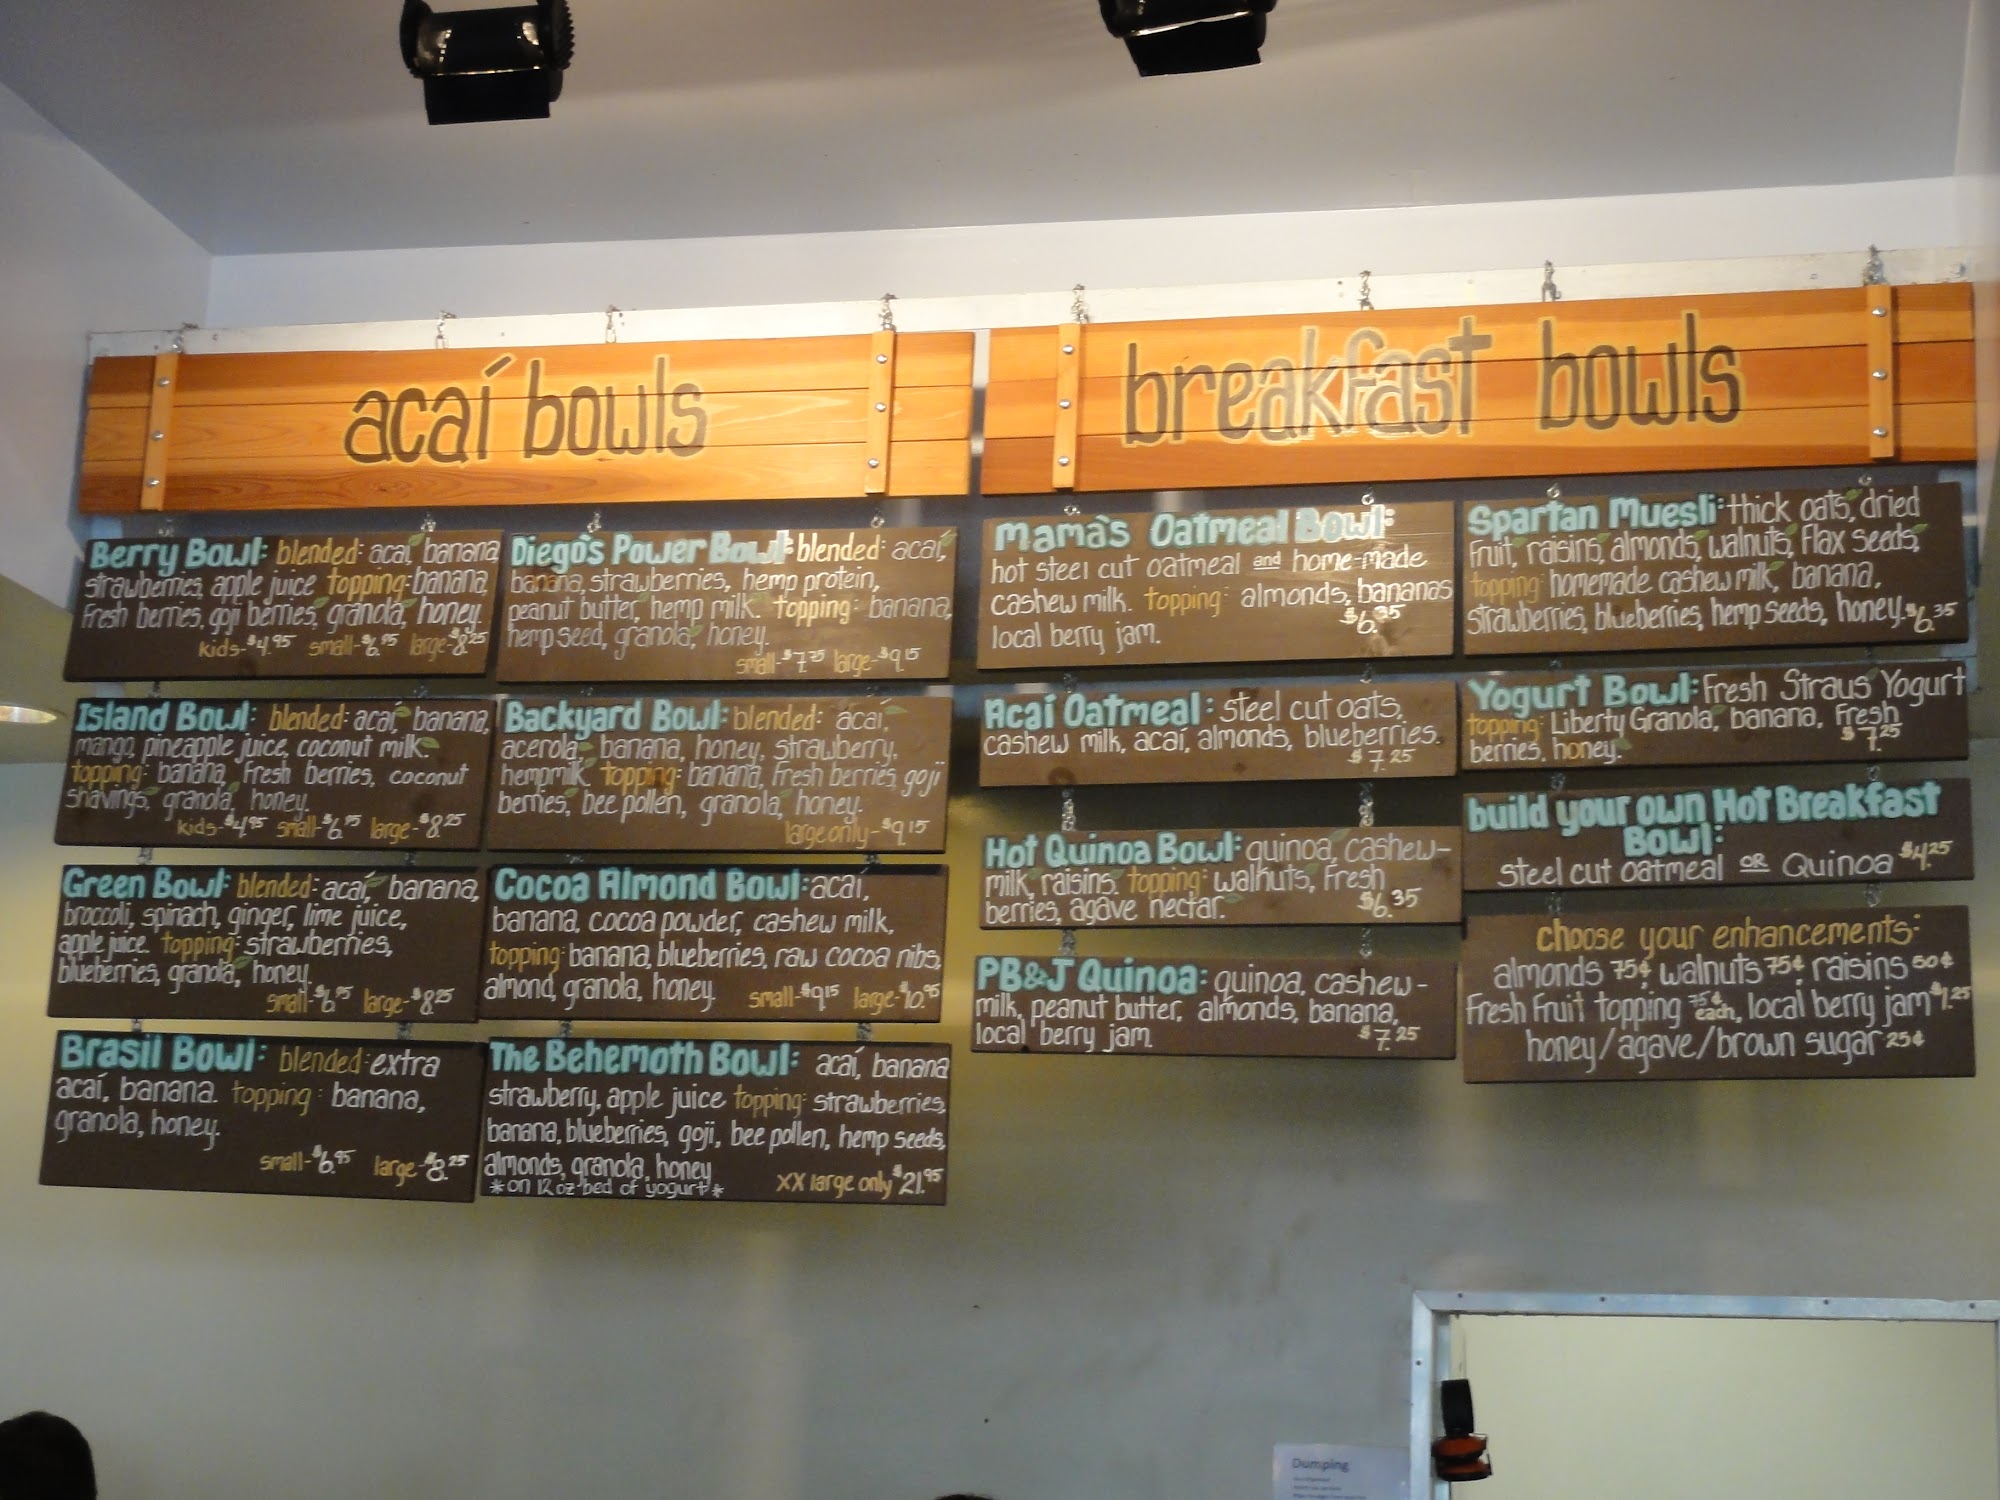 acaí bowls
Berry Bowl: blended: acaí, banana,
strawberries, apple juice topping: banana,
Fresh berries, goji berries, granola, honey.
kids-$4.95 small-$6.95 large-$8.25
Island Bowl: blended: acaí, banana,
mango, pineapple juice, coconut milk.
topping: banana, Fresh berries, coconut
shavings, granola, honey.
kids-$4.95 small-$6.95 large-$8.25
Green Bowl: blended: acaí, banana,
broccoli, spinach, ginger, lime juice,
apple juice. topping: strawberries,
blueberries, granola, honey.
small-$6.95 large-$8.25
Brasil Bowl: blended: extra
acaí, banana. topping: banana,
granola, honey.
small-$6.95 large-$8.25
Diego's Power Bowl: blended: acaí,
banana, strawberries, hemp protein,
peanut butter, hemp milk. topping: banana,
hemp seed, granola, honey.
small-$7.75 large-$9.15
Backyard Bowl: blended: acaí,
acerola, banana, honey, strawberry,
hempmilk. topping: banana, Fresh berries, goji
berries, bee pollen, granola, honey.
large only-$9.15
Cocoa Almond Bowl: acaí,
banana, cocoa powder, cashew milk,
topping: banana, blueberries, raw cocoa nibs,
almond, granola, honey. small-$9.15 large-$10.95
The Behemoth Bowl: acaí, banana
strawberry, apple juice topping: strawberries,
banana, blueberries, goji, bee pollen, hemp seeds,
almonds, granola, honey
*on 12 oz bed of yogurt* XX large only $21.95
breakfast bowls
Mama's Oatmeal Bowl:
hot steel cut oatmeal and home-made
cashew milk. topping: almonds, bananas
local berry jam. $6.35
Acaí Oatmeal: steel cut oats,
cashew milk, acaí, almonds, blueberries.
$7.25
Hot Quinoa Bowl: quinoa, cashew-
milk, raisins. topping: walnuts, Fresh
berries, agave nectar. $6.35
PB&J Quinoa: quinoa, cashew-
milk, peanut butter, almonds, banana,
local berry jam $7.25
Spartan Muesli: thick oats, dried
Fruit, raisins, almonds, walnuts, Flax seeds,
topping: homemade cashew milk, banana,
strawberries, blueberries, hemp seeds, honey. $6.35
Yogurt Bowl: Fresh Straus Yogurt
topping: Liberty Granola, banana, Fresh
berries, honey. $7.25
build your own Hot Breakfast
Bowl:
steel cut oatmeal OR Quinoa $4.25
choose your enhancements:
almonds 75¢ walnuts 75¢ raisins 50¢
Fresh Fruit topping 75¢ each, local berry jam $1.25
honey/agave/brown sugar 25¢
Dumping